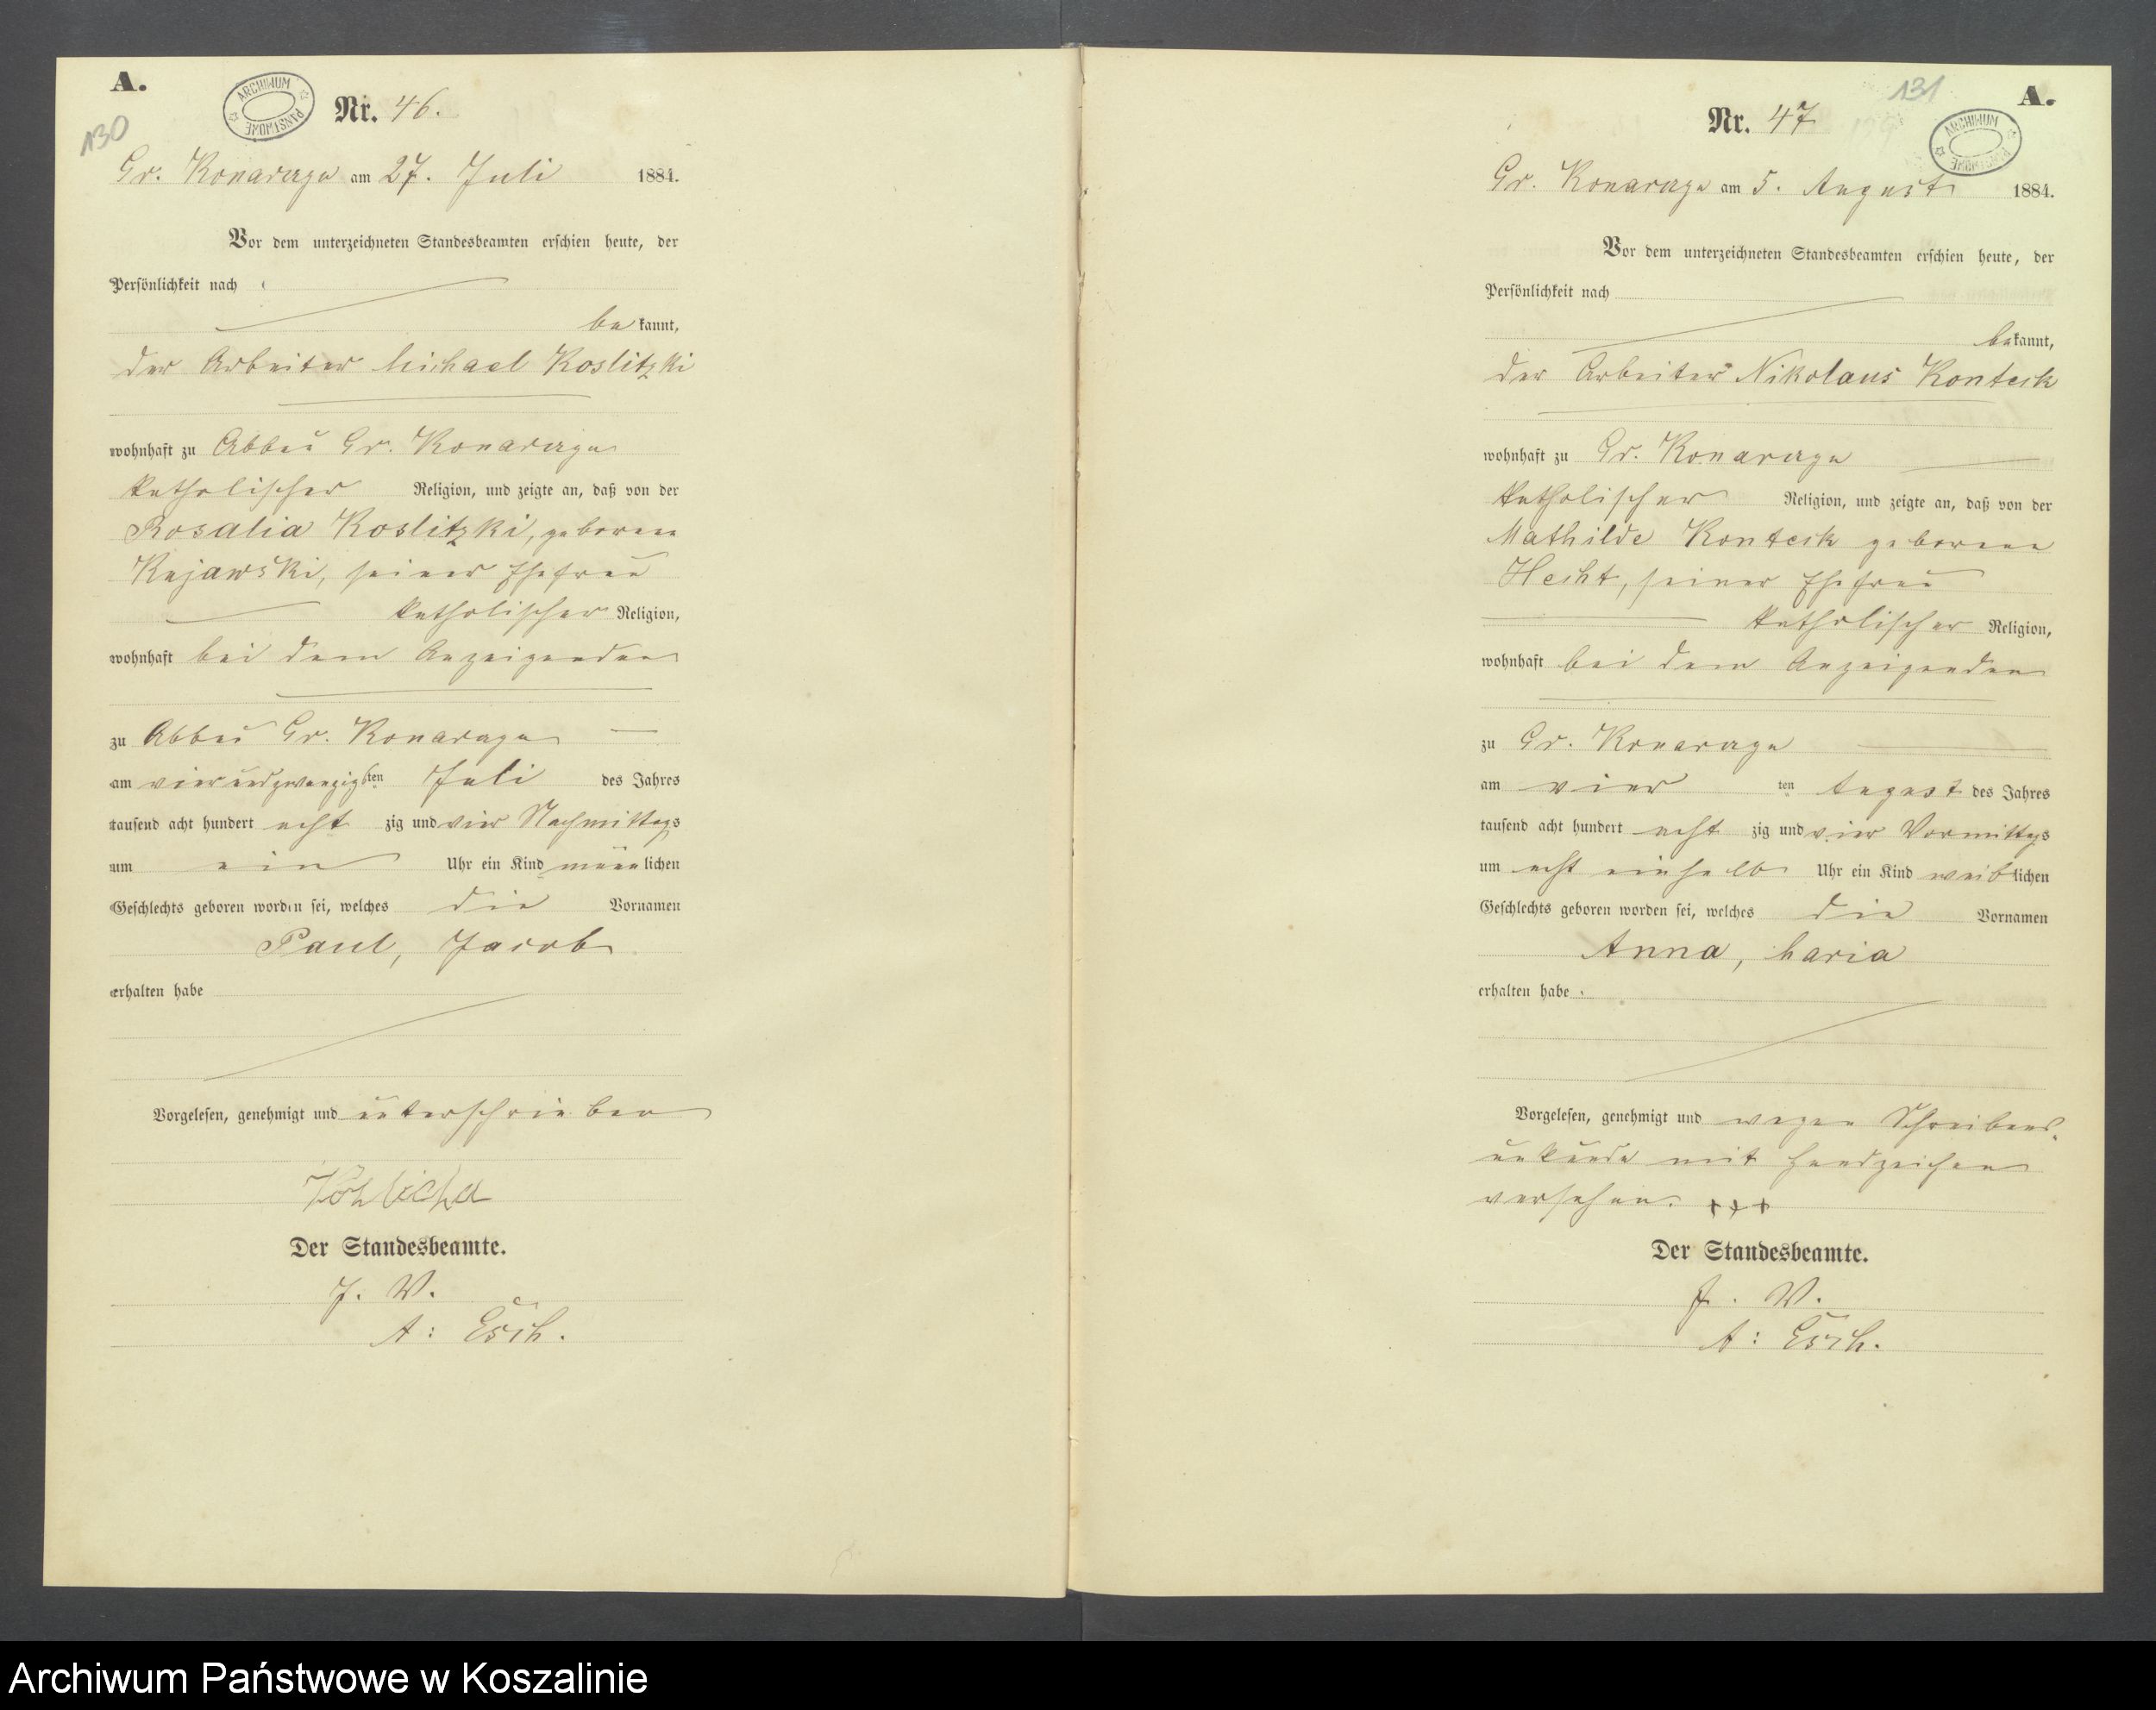 A.
130
ARCHIWUM PAŃSTWOWE
Nr. 46.
Gr. Konarczyn am 27. Juli 1884.
Vor dem unterzeichneten Standesbeamten erschien heute, der
Persönlichkeit nach
bekannt,
der Arbeiter Michael Koslitzki
wohnhaft zu Abbau Gr. Konarczyn
katholischer Religion, und zeigte an, daß von der
Rosalia Koslitzki, geborene
Kujawski, seiner Ehefrau
katholischer Religion,
wohnhaft bei dem Anzeigenden
zu Abbau Gr. Konarczyn
am vierundzwanzigsten Juli des Jahres
tausend acht hundert achtzig und vier Nachmittags
um ein Uhr ein Kind männlichen
Geschlechts geboren worden sei, welches die Vornamen
Paul, Jacob
erhalten habe
Vorgelesen, genehmigt und unterschrieben
Der Standesbeamte.
J. V.
A: Esch.
131
A.
ARCHIWUM PAŃSTWOWE
Nr. 47
Gr. Konarczyn am 5. August 1884.
Vor dem unterzeichneten Standesbeamten erschien heute, der
Persönlichkeit nach
bekannt,
der Arbeiter Nikolaus Konteck
wohnhaft zu Gr. Konarczyn
katholischer Religion, und zeigte an, daß von der
Mathilde Konteck geborene
Hecht, seiner Ehefrau
katholischer Religion,
wohnhaft bei dem Anzeigenden
zu Gr. Konarczyn
am vierten August des Jahres
tausend acht hundert achtzig und vier Vormittags
um acht einhalb Uhr ein Kind weiblichen
Geschlechts geboren worden sei, welches die Vornamen
Anna, Maria
erhalten habe
Vorgelesen, genehmigt und wegen Schreibens-
unkunde mit Handzeichen
versehen. +++
Der Standesbeamte.
J. V.
A: Esch.
Archiwum Państwowe w Koszalinie